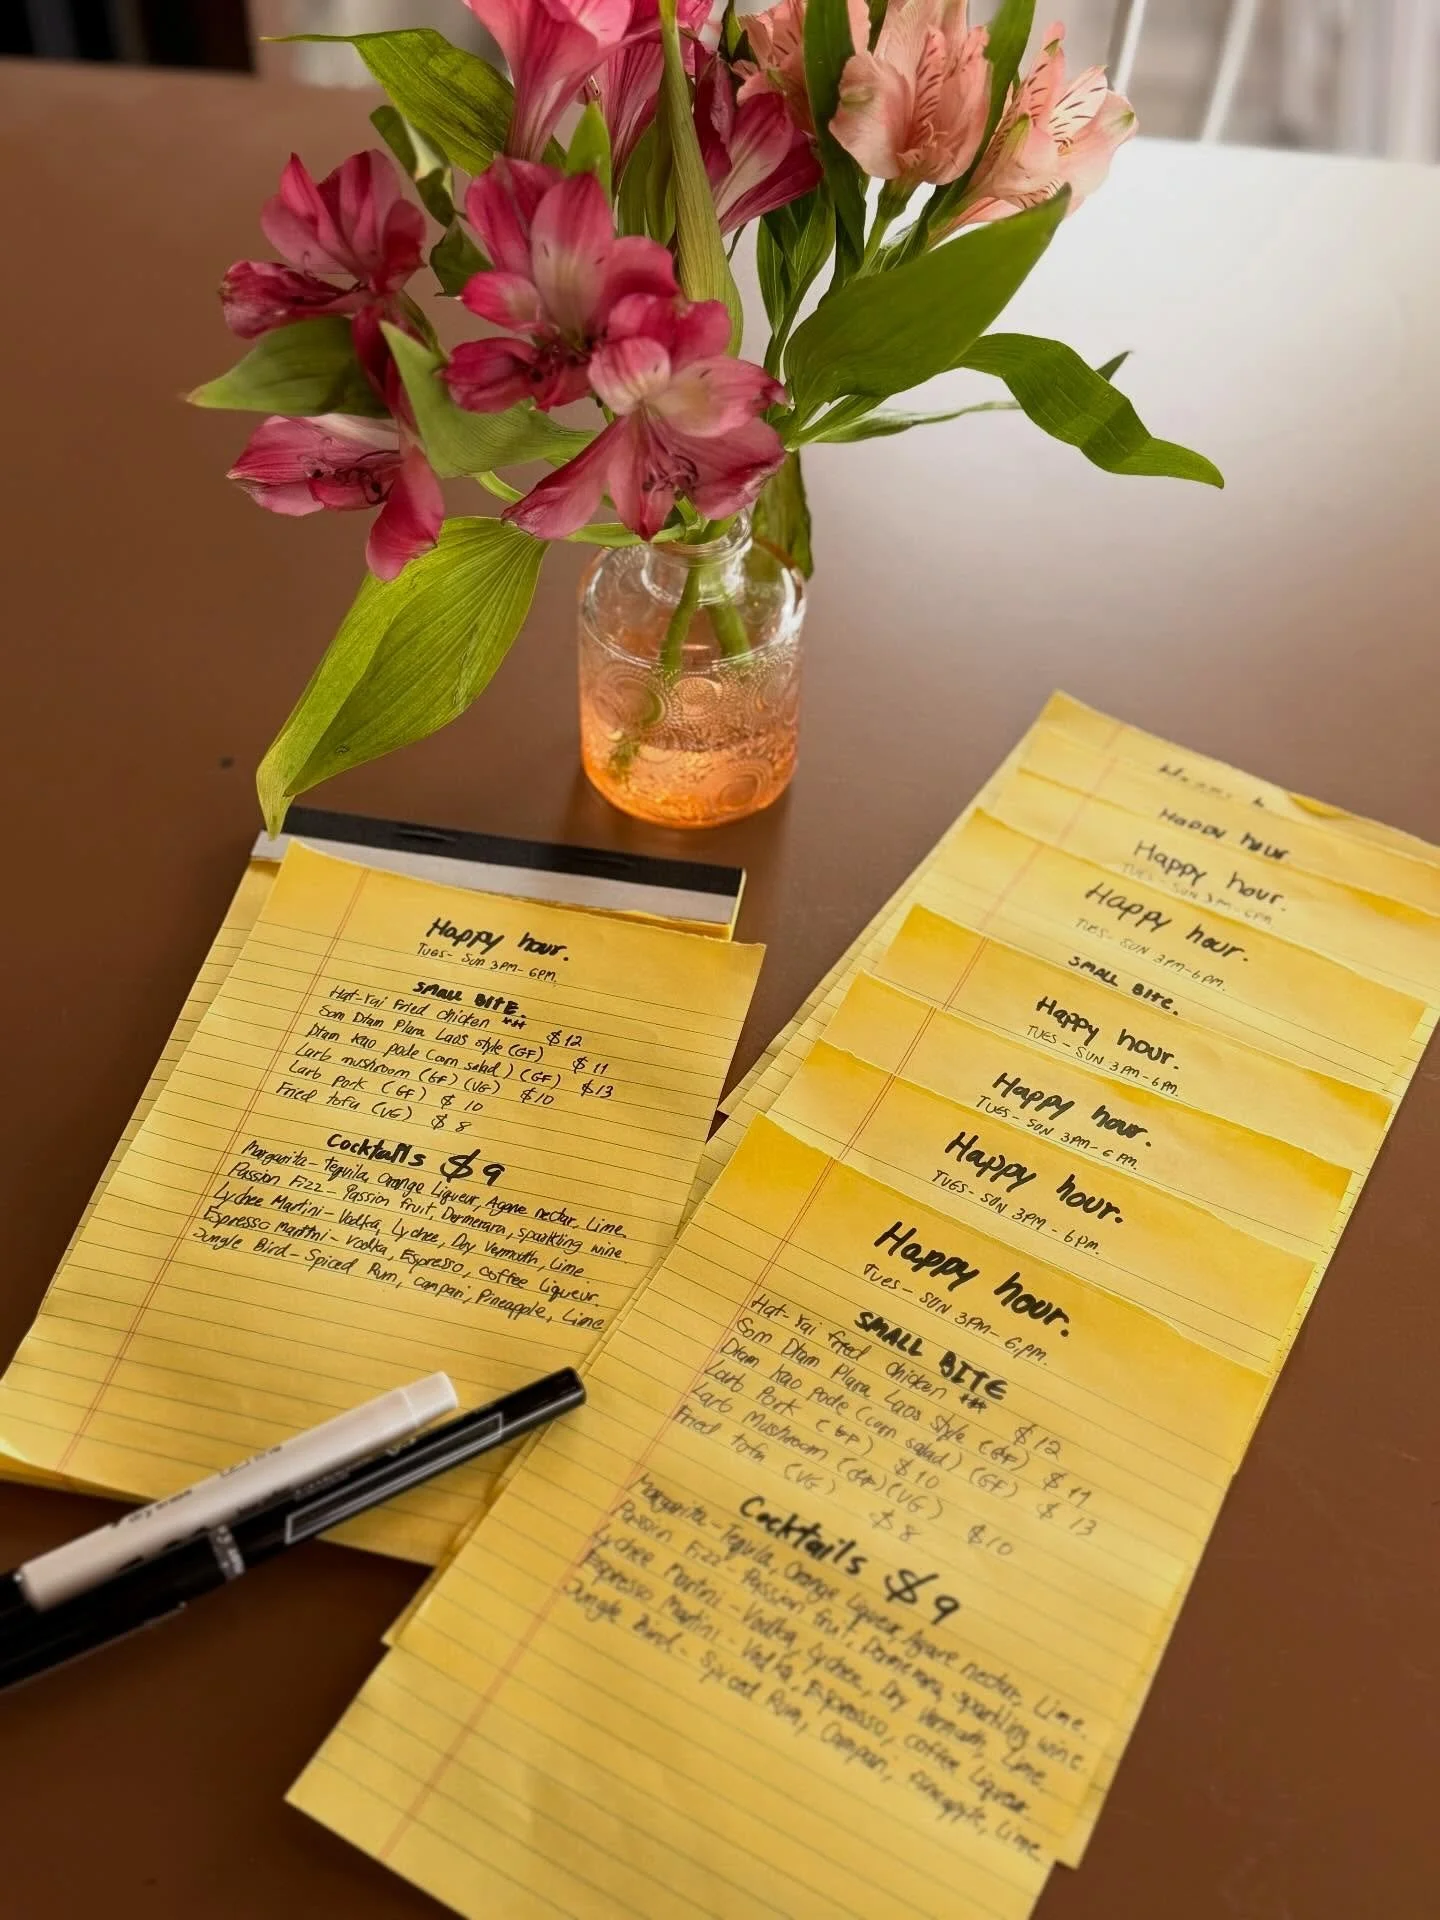 Happy hour.
TUES- SUN 3PM- 6PM.
SMALL BITE.
Hat-Yai Fried chicken *** $12
Som Dtam Plara Laos style (GF) $11
Dtam Kao pode (corn salad) (GF) $13
Larb mushroom (GF) (VG) $10
Larb Pork (GF) $10
Fried tofu (VG) $8
Cocktails $9
Margarita- Tequila, Orange Liqueur, Agave nectar, Lime
Passion Fizz- Passion fruit, Dermerara, sparkling wine
Lychee Martini- Vodka, Lychee, Dry Vermouth, Lime
Espresso Martini- Vodka, Espresso, coffee Liqueur.
Jungle Bird- Spiced Rum, Campari, Pineapple, Lime
Happy hour
Happy hour.
TUES- SUN 3PM-6PM.
Happy hour.
TUES- SUN 3PM-6PM.
SMALL BITE.
Happy hour.
TUES- SUN 3PM-6PM.
Happy hour.
TUES- SUN 3PM-6PM.
Happy hour.
TUES- SUN 3PM- 6PM.
Happy hour.
TUES- SUN 3PM- 6PM.
SMALL BITE
Hat-Yai fried chicken *** $12
Som Dtam Plara Laos style (GF) $11
Dtam Kao pode (corn salad) (GF) $13
Larb Pork (GF) $10
Larb Mushroom (GF)(VG) $10
Fried tofu (VG) $8
Cocktails $9
Margarita- Tequila, Orange Liqueur, Agave nectar, Lime.
Passion Fizz- Passion fruit, Dermerara, sparkling wine.
Lychee Martini- Vodka, Lychee, Dry Vermouth, Lime.
Espresso Martini- Vodka, Espresso, coffee Liqueur.
Jungle Bird- Spiced Rum, Campari, Pineapple, Lime.